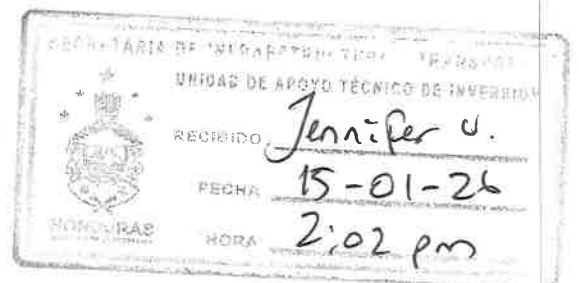 SECRETARIA DE INFRAESTRUCTURA TRANSPORTE
UNIDAD DE APOYO TÉCNICO DE INVERSION
RECIBIDO Jennifer U.
FECHA 15-01-26
HONDURAS
HORA 2:02 pm